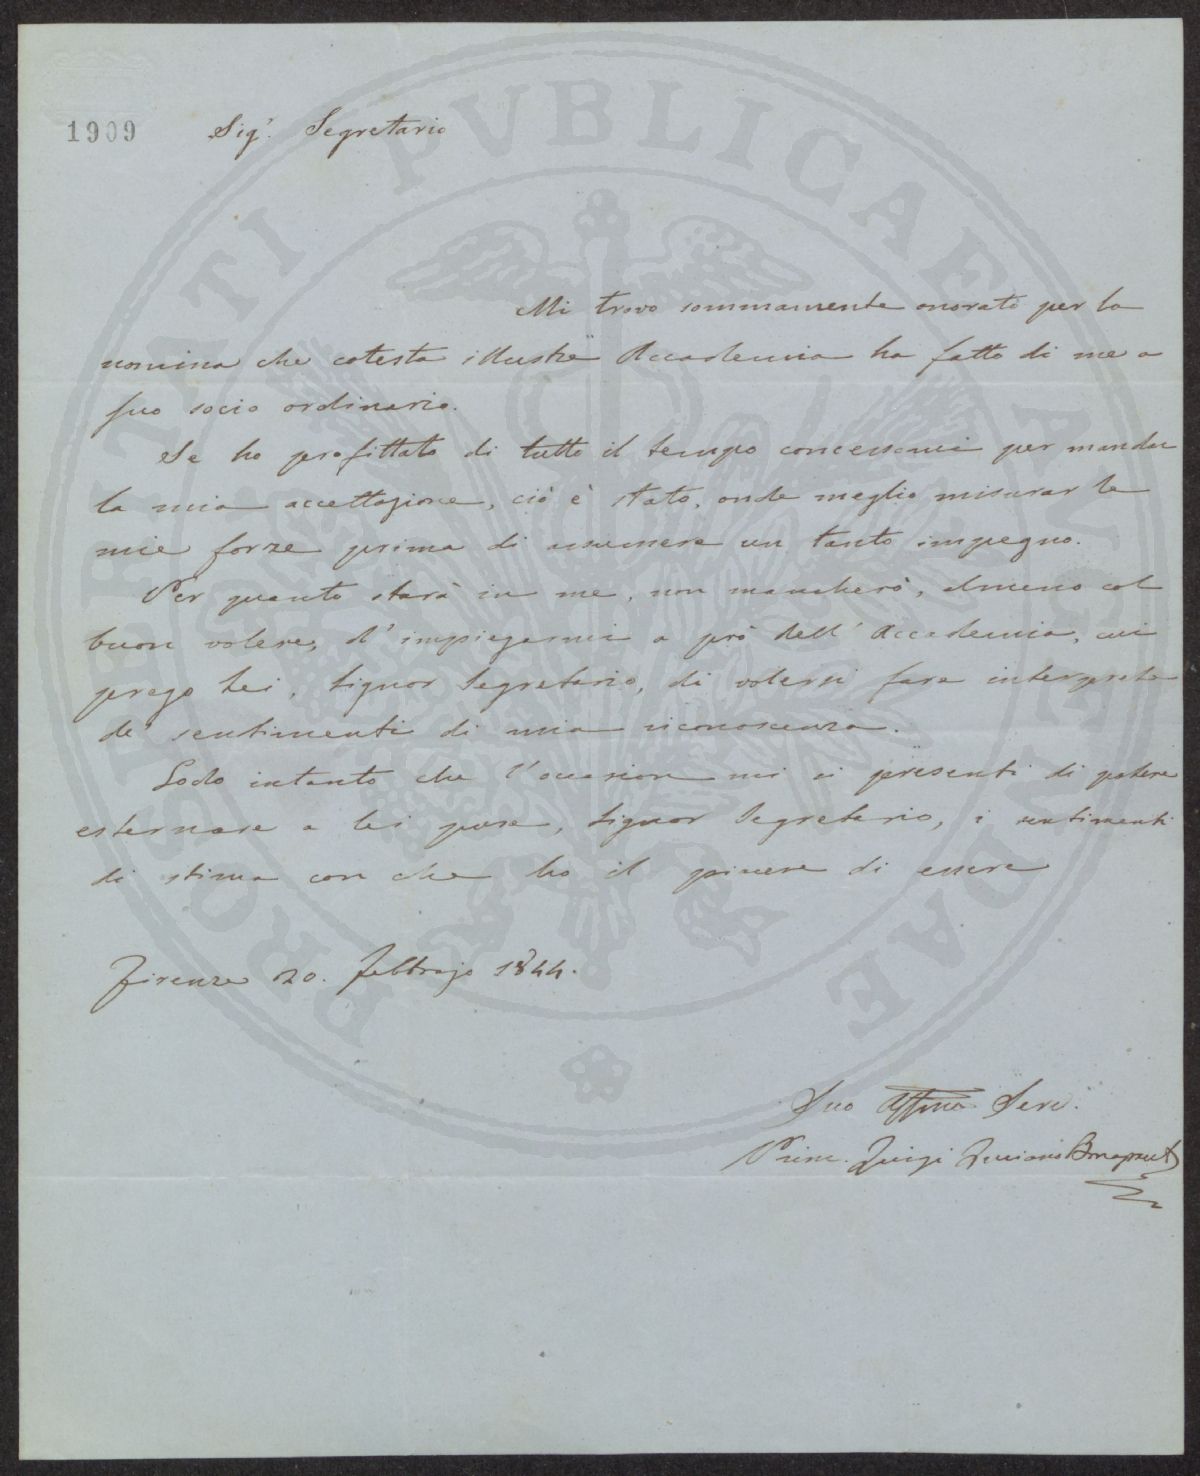 1909
Sig.r Segretario
Mi trovo sommamente onorato per la
nomina che cotesta illustre Accademia ha fatto di me a
suo socio ordinario.
Se ho profittato di tutto il tempo concessomi per mandar
la mia accettazione, ciò è stato, onde meglio misurar le
mie forze prima di assumere un tanto impegno.
Per quanto starà in me, non mancherò, almeno col
buon volere, d'impiegarmi a prò dell'Accademia, cui
prego Lei, Signor Segretario, di volersi fare interprete
de' sentimenti di mia riconoscenza.
Godo intanto che l'occasione mi si presenti di potere
esternare a lei pure, Signor Segretario, i sentimenti
di stima con che ho il piacere di essere
Firenze 20. Febbrajo 1844.
Suo Affmo Serv.
Princ. Luigi Luciano Bonaparte
PROSPERITATI PVBLICAE AVGENDAE